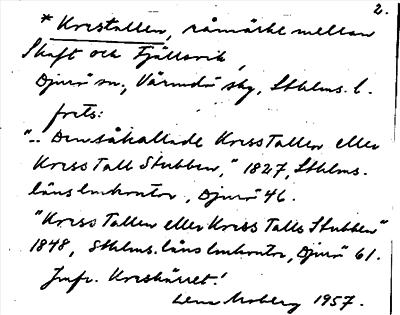 2.
* Kristallen, råmärke mellan
Skaft och Fjällsvik,
Djurö sn., Värmdö skg, Sthlms. l.
forts:
".. Den såkallade Kriss Tallen eller
Kriss Tall Stubben," 1827, Sthlms.
läns lmkontor, Djurö 46.
"Kriss Tallen eller Kriss Talls Stubben"
1848, Sthlms. läns lmkontor, Djurö 61.
Jmfr. Kreskärret!
Lena Moberg 1957.